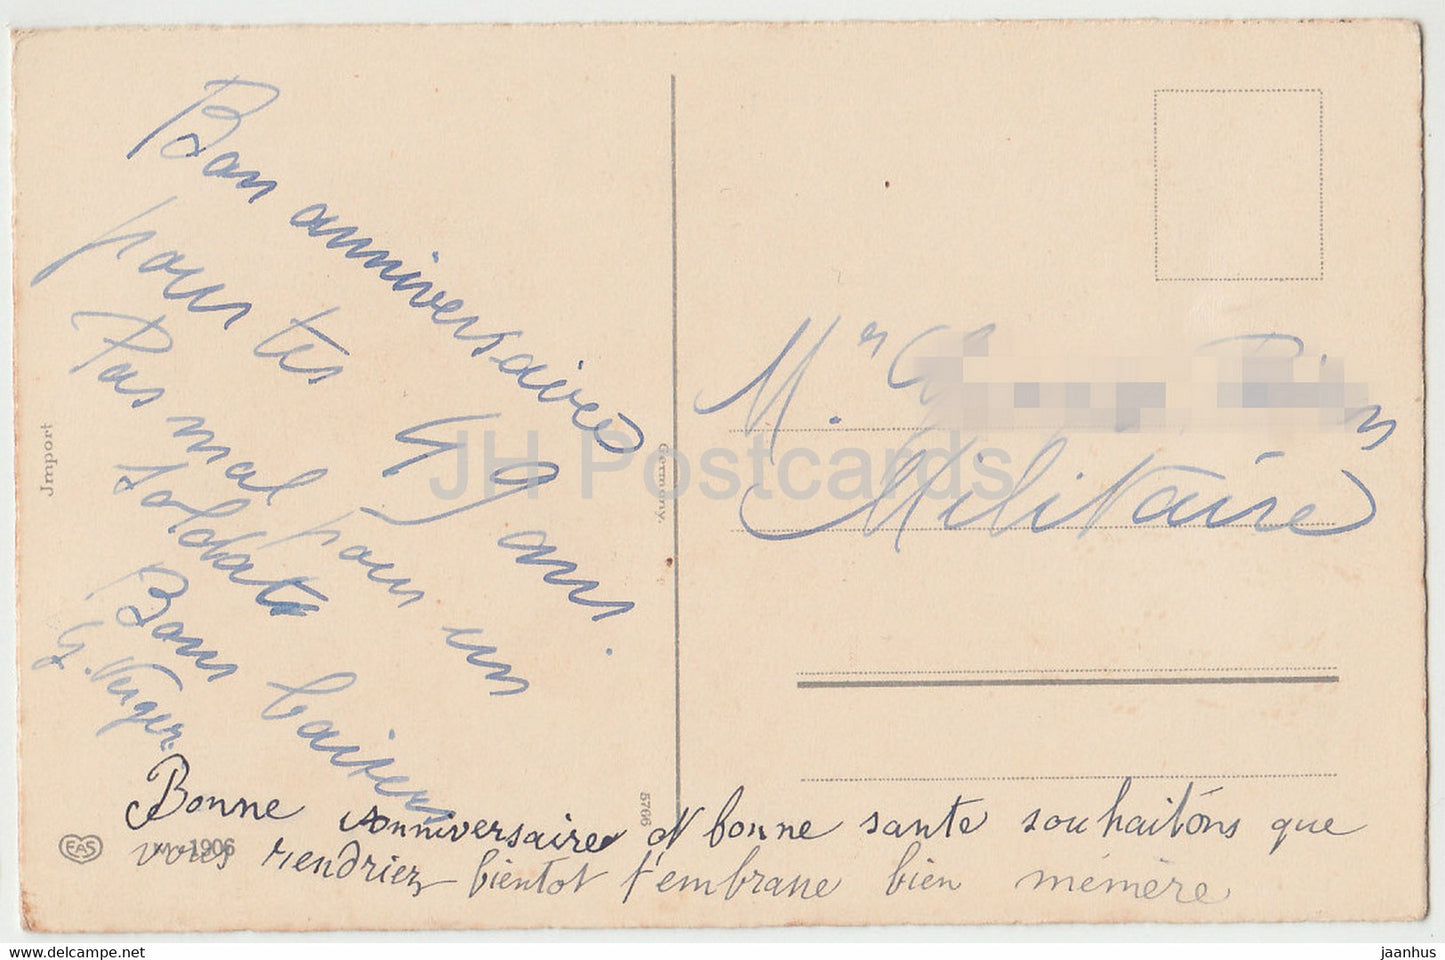 Bon anniversaire
pour tes 49 ans.
Pas mal pour un
soldat
Bons baisers
G. Verger.
Bonne anniversaire et bonne sante souhaitóns que
vous rendriez bientot t'embrasse bien mémère
Mr
Militaire
Jmport
Germany.
5766
EAS
1906
JH Postcards
www.delcampe.net
jaanhus